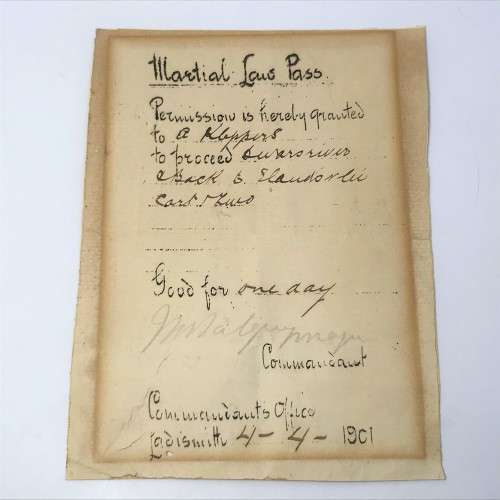 Martial Law Pass.
Permission is hereby granted
to A Kleppers
to proceed
Back &
Cart & Two
Good for one day
Commandant
Commandant's Office
Ladismith 4 - 4 - 1901